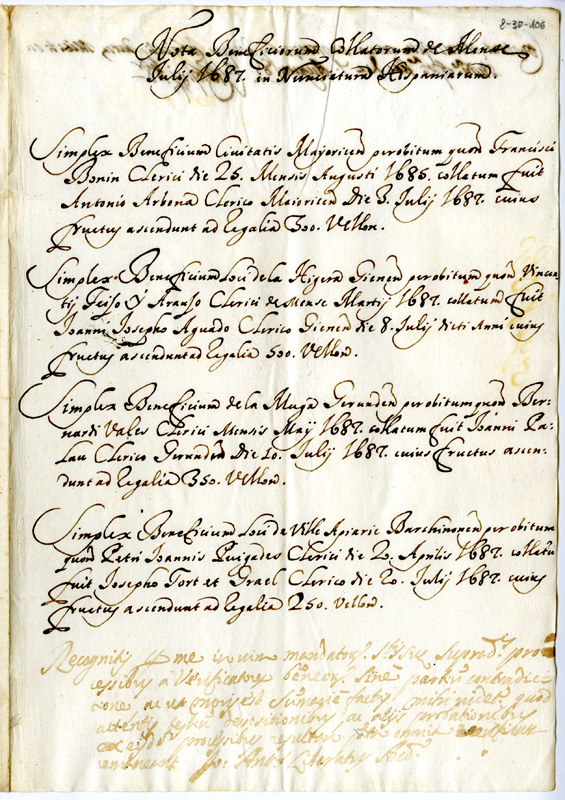 8-30-106
Nota Beneficiorum Collatorum de Mense
Julij 1687. in Nunciatura Hispaniarum.
Simplex Beneficium Civitatis Majoricen per obitum quon Francisci
Bonin Clerici die 25. Mensis Augusti 1685. collatum fuit
Antonio Arbona Clerico Maioricen Die 3. Julij 1687. cuius
fructus ascendunt ad Regalia 300. Vellon.
Simplex Beneficium Loci de la Higera Gienen per obitum quon Vincen
tij Feijo y Araujo Clerici de Mense Martij 1687. collatum fuit
Ioanni Iosepho Aguado Clerico Gienen die 8. Julij dicti Anni cuius
fructus ascendunt ad Regalia 500. Vellon.
Simplex Beneficium de la Muga Gerunden per obitum quon Ber-
nardi Vales Clerici Mensis Maij 1687. collatum fuit Ioanni Pa-
lau Clerico Gerunden Die 10. Julij 1687. cuius fructus ascen-
dunt ad Regalia 350. Vellon.
Simplex Beneficium Loci de Ville Apiarie Barchinonen per obitum
quon Petri Ioannis Puigades Clerici die 2. Aprilis 1687. collatu
fuit Iosepho Fort et Grael Clerico die 20. Julij 1687. cuius
fructus ascendunt ad Regalia 250. Vellon.
Recognitis per me in vim mandator. suprad. pro
cessibus a Verificatore sine partiu contradic
tione ac ut moris est sumarie factis mihi videt. quod
attentis testiu depositionibus ac alijs probationibus
ex ejsd. processibus resultan
remaneant.